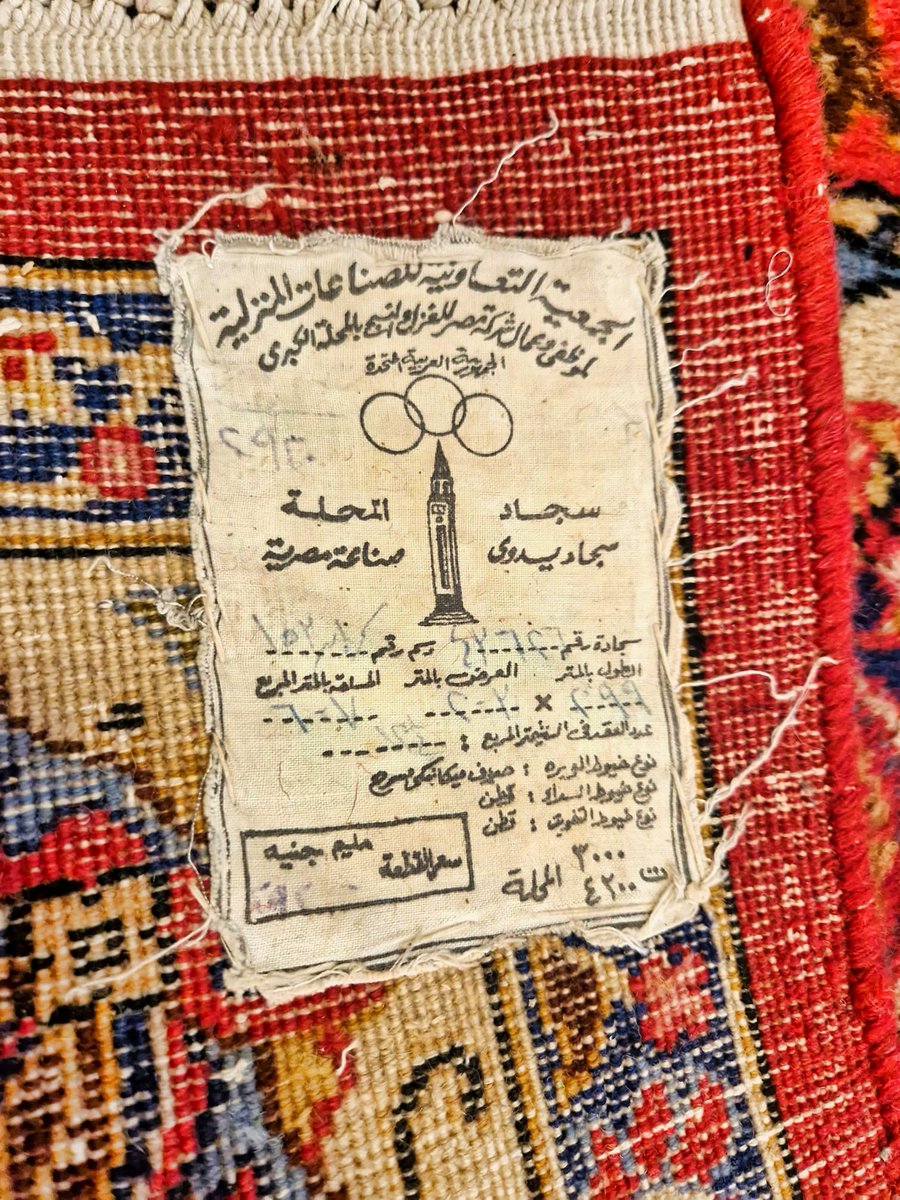 الجمعية التعاونية للصناعات المنزلية
لموظفى وعمال شركة مصر للغزل والنسيج بالمحلة الكبرى
الجمهورية العربية المتحدة
سجاد المحلة
سجاد يدوى صناعة مصرية
سجادة رقم رسم رقم
الطول بالمتر العرض بالمتر المساحة بالمتر المربع
×
عدد العقد فى السنتيمتر المربع :
نوع خيوط الوبره : صوف ميكانيكى مسرح
نوع خيوط السداء : قطن
نوع خيوط : قطن
مليم جنيه
سعر القطعة
٣٠٠٠
ت ٤٢٠٠ المحلة